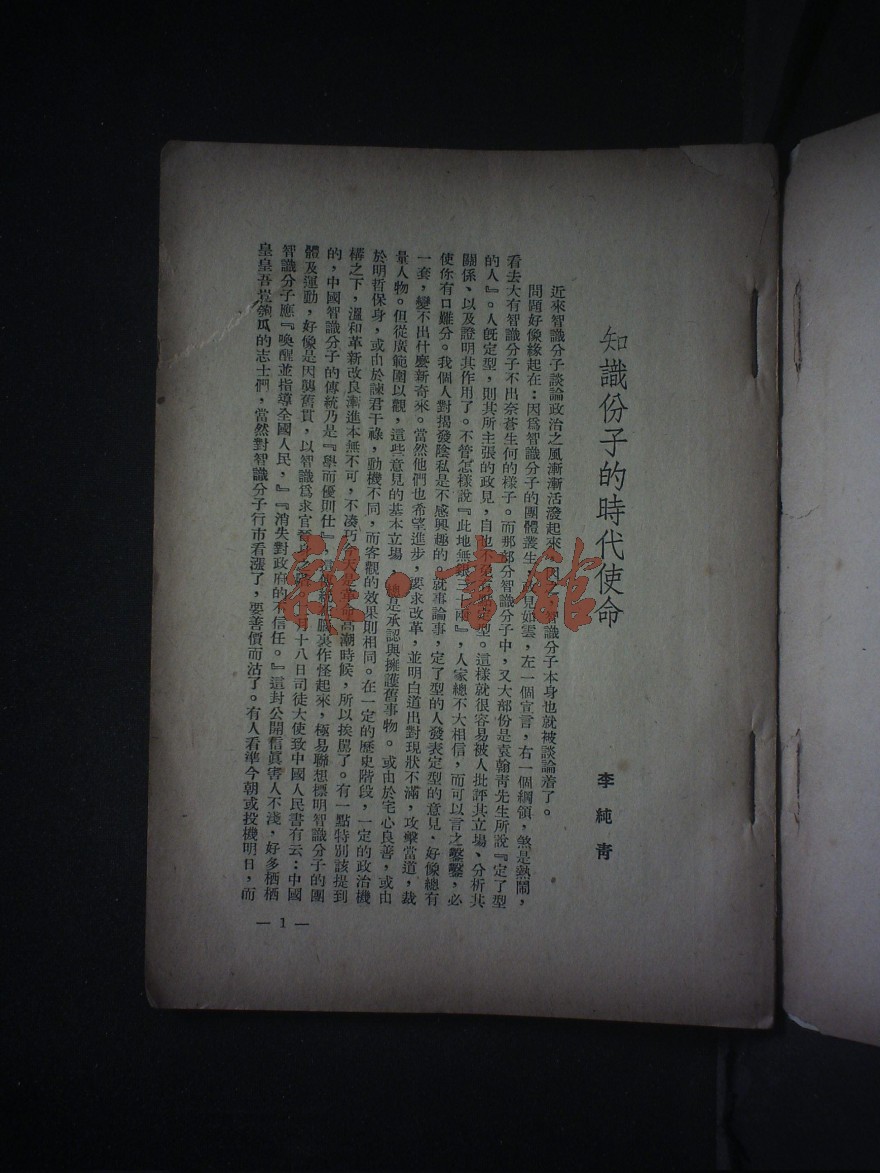 知識份子的時代使命
李純青
近來智識分子談論政治之風漸漸活潑起來，因之，智識分子本身也就被談論着了。
問題好像緣起在：因爲智識分子的團體叢生，意見如雲，左一個宣言，右一個綱領，煞是熱鬧，
看去大有智識分子不出奈蒼生何的樣子。而那部分智識分子中，又大部份是袁翰青先生所說『定了型
的人』。人旣定型，則其所主張的政見，自也定型。這樣就很容易被人批評其立場、分析其
關係、以及證明其作用了。不管怎樣說『此地無銀三十兩』，人家總不大相信，而可以言之鑿鑿，必
使你有口難分。我個人對揭發陰私是不感興趣的，就事論事，定了型的人發表定型的意見，好像總有
一套，變不出什麼新奇來。當然他們也希望進步，要求改革，並明白道出對現狀不滿，攻擊當道，裁
量人物。但從廣範圍以觀，這些意見的基本立場，總是承認與擁護舊事物。或由於宅心良善，或由
於明哲保身，或由於諫君干祿，動機不同，而客觀的效果則相同。在一定的歷史階段，一定的政治機
構之下，溫和革新改良漸進本無不可，不湊巧今天是革命高潮時候，所以挨罵了。有一點特別該提到
的，中國智識分子的傳統乃是『學而優則仕』，這傳統在腦裏作怪起來，極易聯想標明智識分子的團
體及運動，好像是因襲舊貫，以智識爲求官月十八日司徒大使致中國人民書有云：中國
智識分子應『喚醒並指導全國人民，』『消失對政府的不信任。』這封公開信眞害人不淺，好多栖栖
皇皇吾豈匏瓜的志士們，當然對智識分子行市看漲了，要善價而沽了。有人看準今朝或投機明日，而
— 1 —
雜·書館